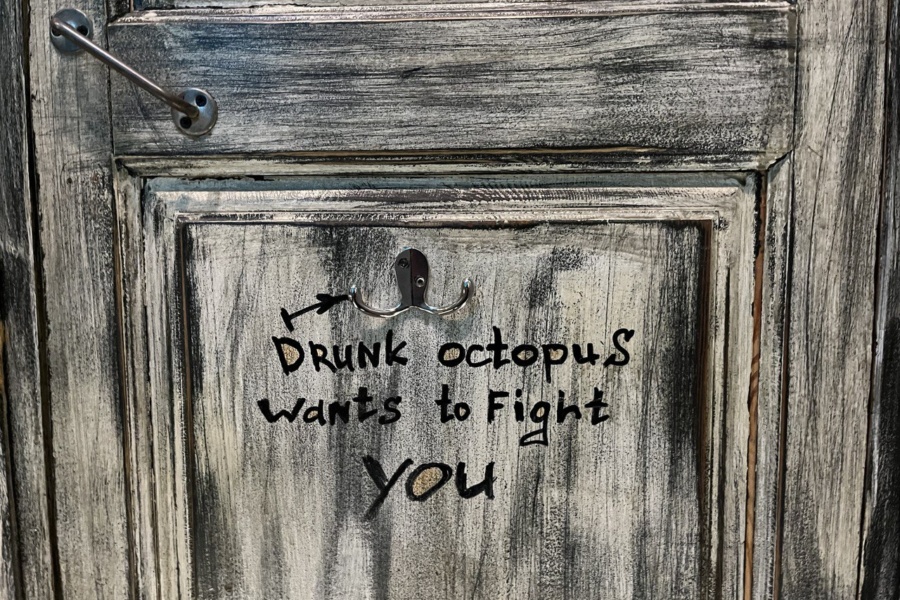 DRUNK octopuS
wants to Fight
YOU